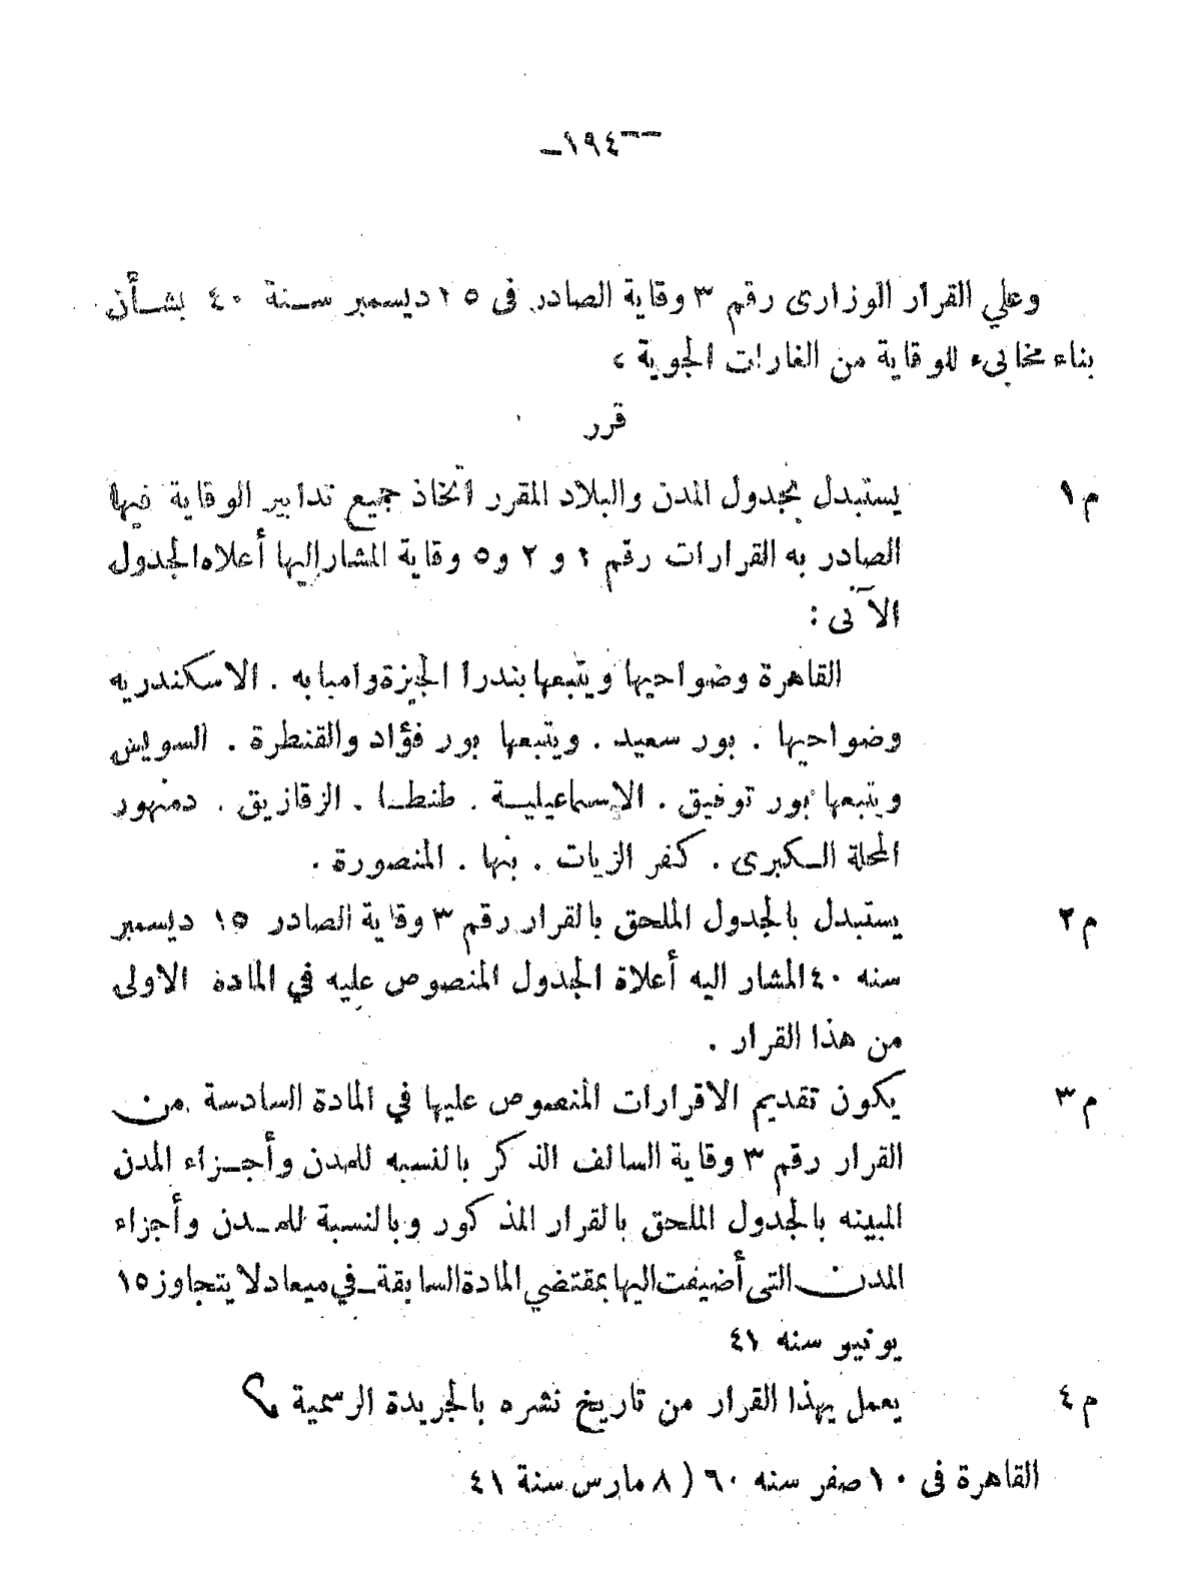 −١٩٤−
وعلي القرار الوزارى رقم ٣ وقاية الصادر فى ١٥ ديسمبر سنة ٤٠ بشأن
بناء مخابىء للوقاية من الغارات الجوية ،
قرر
م١ يستبدل بجدول المدن والبلاد المقرر اتخاذ جميع تدابير الوقاية فيها
الصادر به القرارات رقم ١ و ٢ و٥ وقاية المشار إليها أعلاه الجدول
الآتى :
القاهرة وضواحيها ويتبعها بندرا الجيزة وامبابه . الاسكندريه
وضواحيها . بور سعيد . ويتبعها بور فؤاد والقنطرة . السويس
ويتبعها بور توفيق . الإسماعيلية . طنطا . الزقازيق . دمنهور
المحلة الكبرى . كفر الزيات . بنها . المنصورة .
م٢ يستبدل بالجدول الملحق بالقرار رقم ٣ وقاية الصادر ١٥ ديسمبر
سنه ٤٠ المشار اليه أعلاة الجدول المنصوص عليه في المادة الاولى
من هذا القرار .
م٣ يكون تقديم الاقرارات المنصوص عليها في المادة السادسة من
القرار رقم ٣ وقاية السالف الذكر بالنسبه للمدن وأجزاء المدن
المبينه بالجدول الملحق بالقرار المذكور وبالنسبة للمدن وأجزاء
المدن التى أضيفت اليها بمقتضي المادة السابقة في ميعاد لا يتجاوز ١٥
يونيو سنه ٤١
م٤ يعمل بهذا القرار من تاريخ نشره بالجريدة الرسمية
القاهرة فى ١٠ صفر سنه ٦٠ ( ٨ مارس سنة ٤١